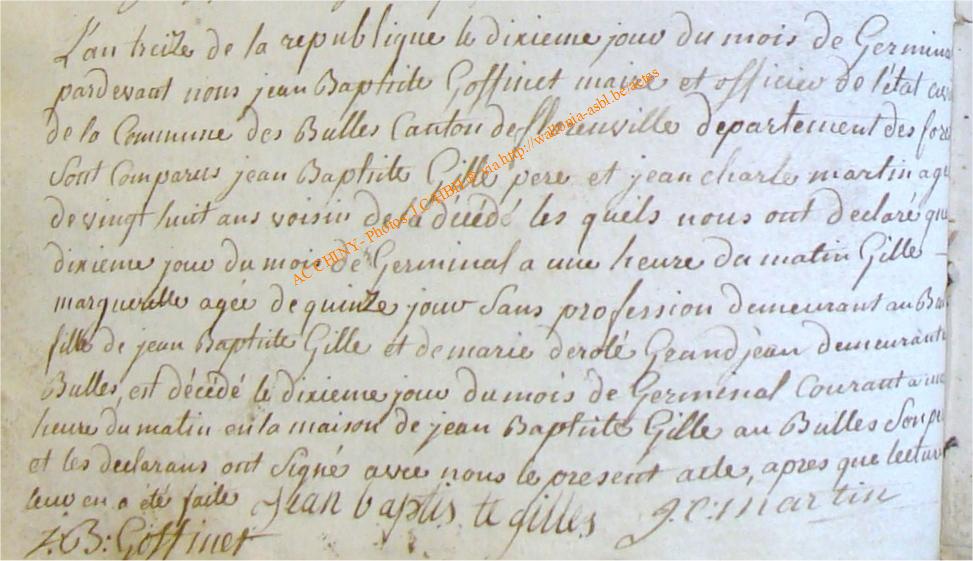 L'an treize de la republique le dixieme jour du mois de Germinal
pardevant nous jean Baptiste Goffinet maire et officier de l'état civil
de la Commune des Bulles Canton de departement des foret
Sont Comparus jean Baptiste Gille pere et jean charle martin agé
de vingt huit ans voisin de décédé les quels nous ont declaré que
dixieme jour du mois de Germinal a une heure du matin Gille
marguerithe agée de quinze jour Sans profession demeurant au Bu
fille de jean Baptiste Gille et de marie derolé Grandjean demeurante
Bulles, est décédé le dixieme jour du mois de Germinal Courant a une
heure du matin en la maison de jean Baptiste Gille au Bulles Son pere
et les declarans ont Signé avec nous le present acte, apres que lecture
leur en a été faite Jean baptis te gilles J.C: Martin
J.B: Goffinet
AC CHINY- Photos J.C HBH & via http://wallonia-asbl.be/actes